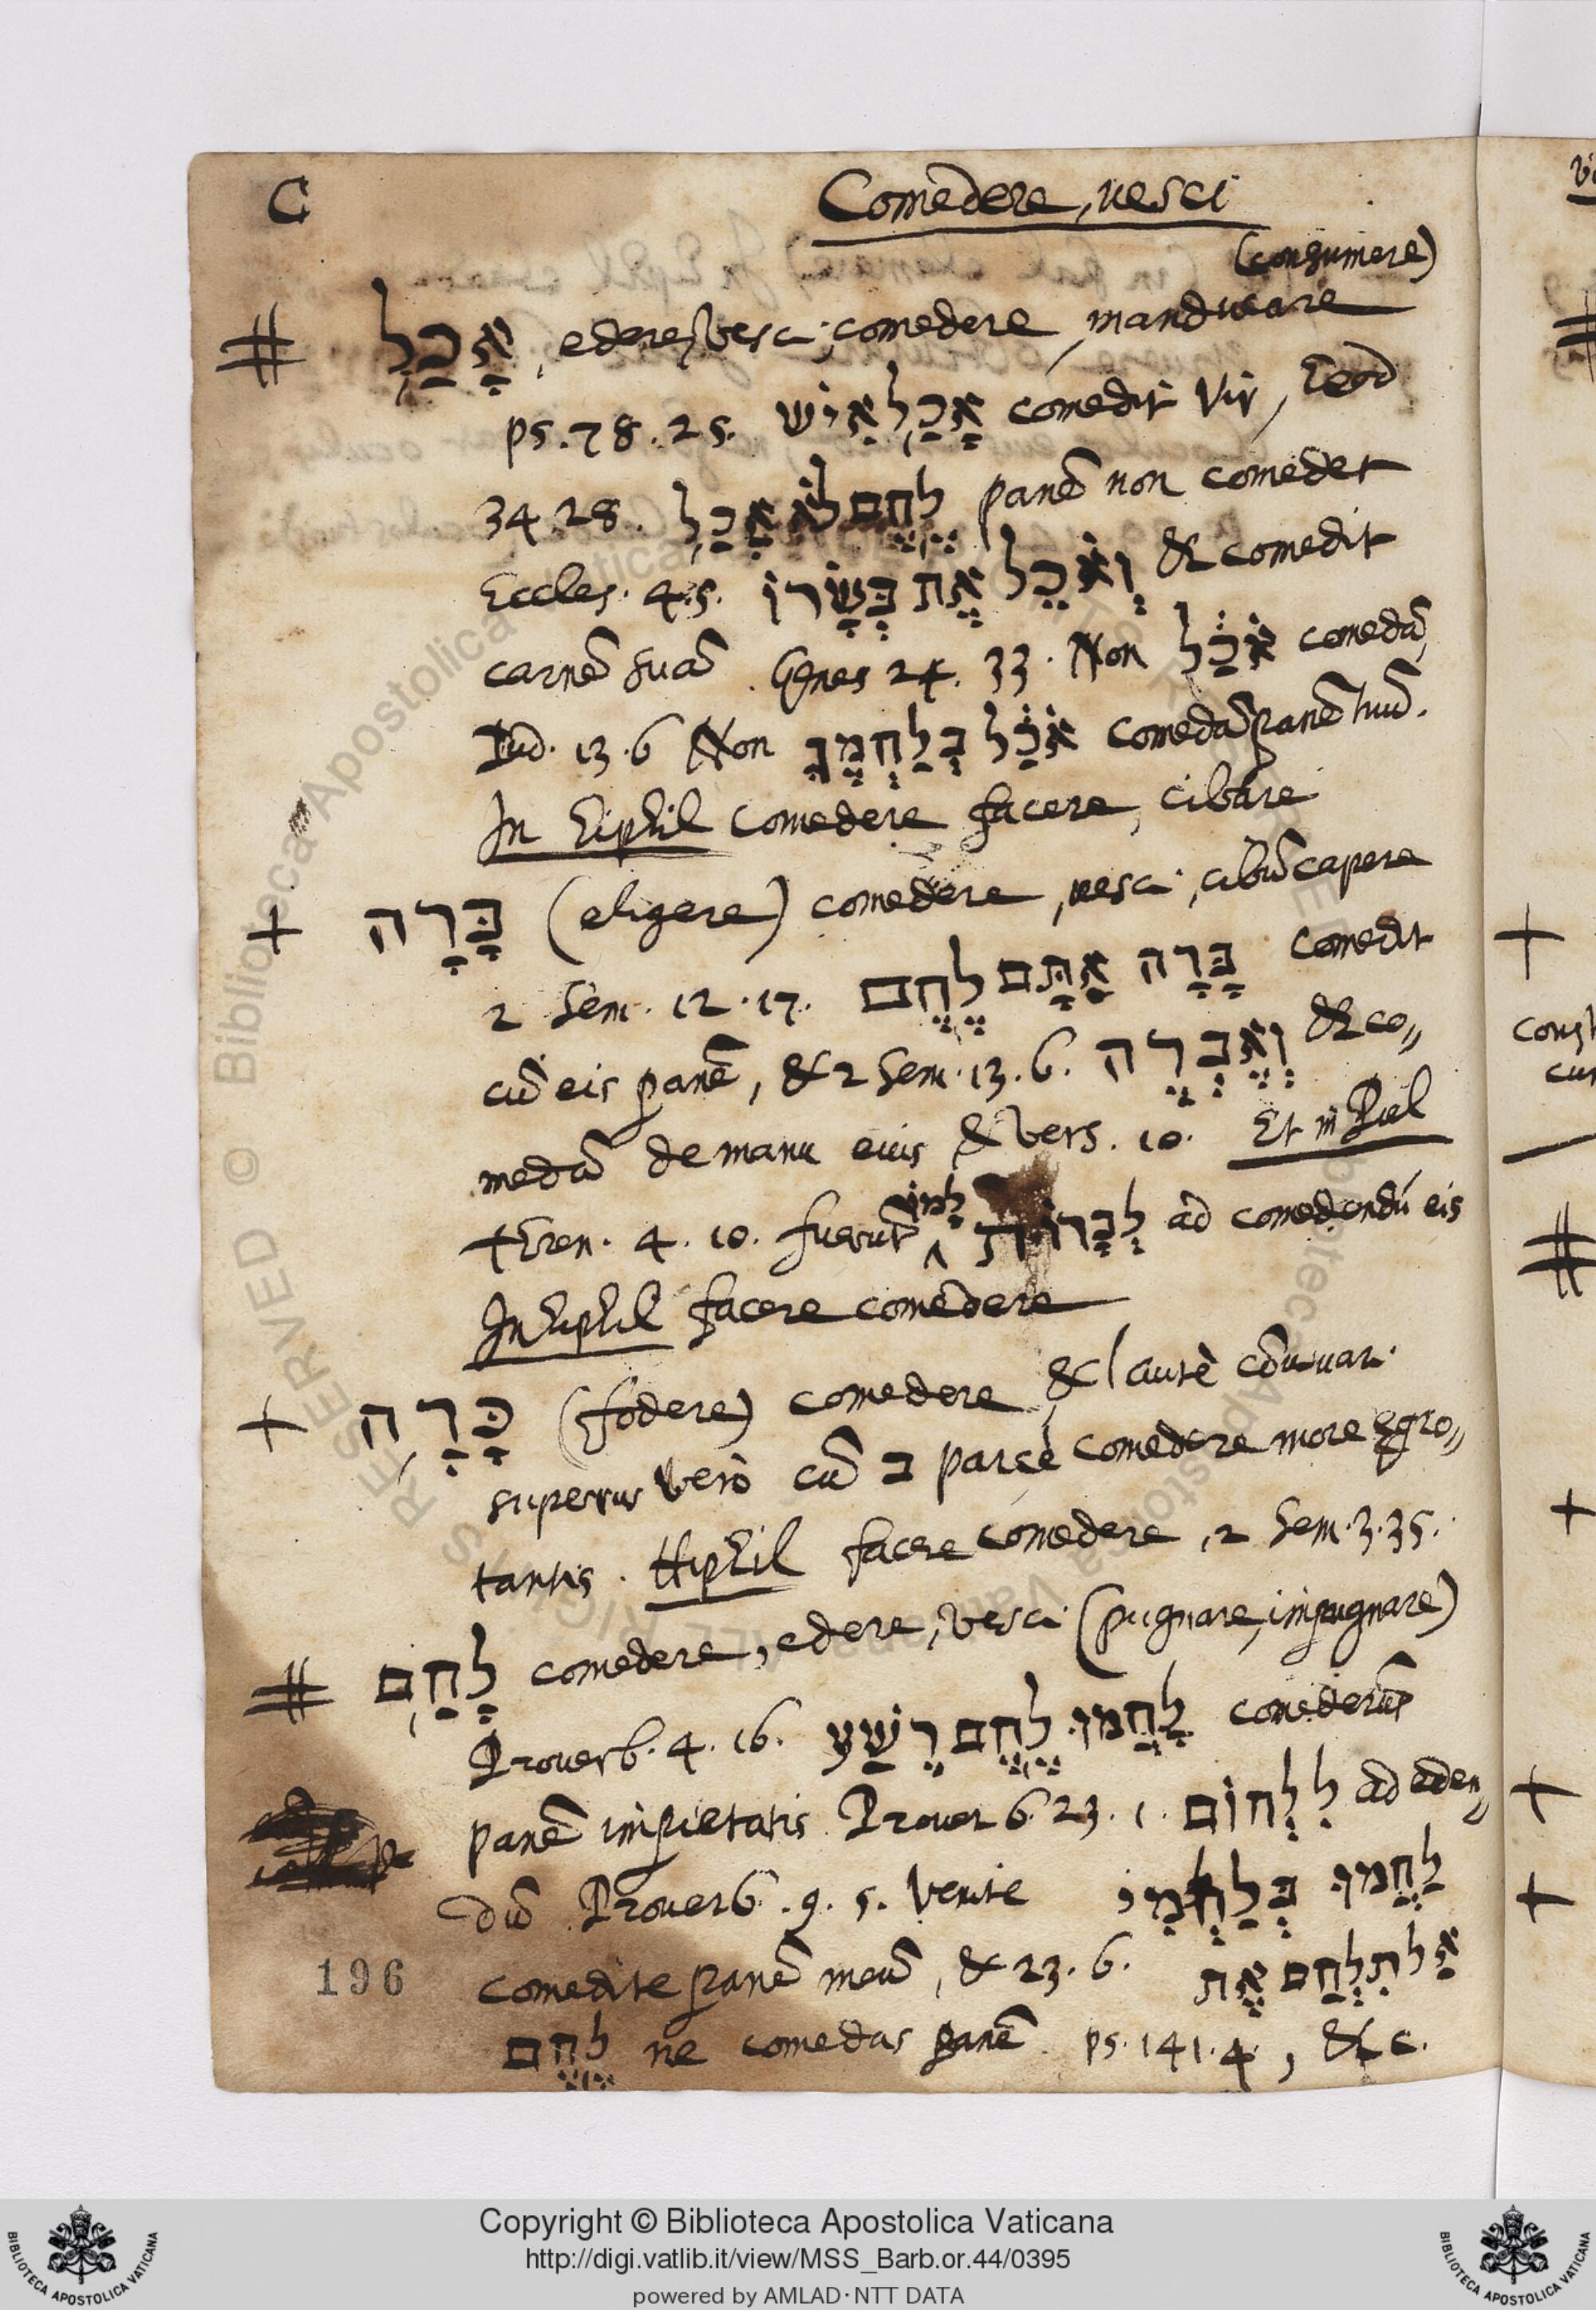 C Comedere, vesci
(consumere)
# אָכַל, edere, vesci, comedere, manducare
ps. 78. 25. אָכַל אִישׁ comedit vir, Exod
34. 28. לֶחֶם לֹא אָכַל panē non comedet
Eccles. 4. 5. וְאֹכֵל אֶת בְּשָׂרוֹ & comedit
carnē suā. Genes 24. 33. Non אֹכַל comedā,
Iud. 13. 6 Non אֹכַל בְּלַחְמֶךָ comedā panē tuū.
In Hiphil comedere facere, cibare
+ בָּרָה (eligere) comedere, vesci, cibū capere
2 Sem. 12. 17. בָּרָה אִתָּם לֶחֶם comedit
cū eis panē, & 2 Sem. 13. 6. וְאֶבְרֶה & co„
medā de manu eius & vers. 10. Et in Piel
+ Tren. 4. 10. fuerūt לְבָרוֹת לָמוֹ ad comedendū eis
In Hiphil facere comedere
+ כָּרָה (fodere) comedere, & lautè cōvivar.
superius verò cū ב parcè comedere more egro„
tantis. Hiphil facere comedere, 2 Sem. 3. 35.
# לָחַם comedere, edere, vesci (pugnare, impugnare)
Proverb. 4. 16. לָחֲמוּ לֶחֶם רֶשַׁע comederūt
panē impietatis Prover b. 23. 1. לִלְחוֹם ad eden„
dū Proverb. 9. 5. Venite לַחֲמוּ בְּלַחְמִי
comedite panē meū, & 23. 6. אַל תִלְחַם אֶת
לֶחֶם ne comedas panē ps. 141. 4, & c.
196
Copyright © Biblioteca Apostolica Vaticana
http://digi.vatlib.it/view/MSS_Barb.or.44/0395
powered by AMLAD·NTT DATA
BIBLIOTECA APOSTOLICA VATICANA
BIBLIOTECA APOSTOLICA VATICANA